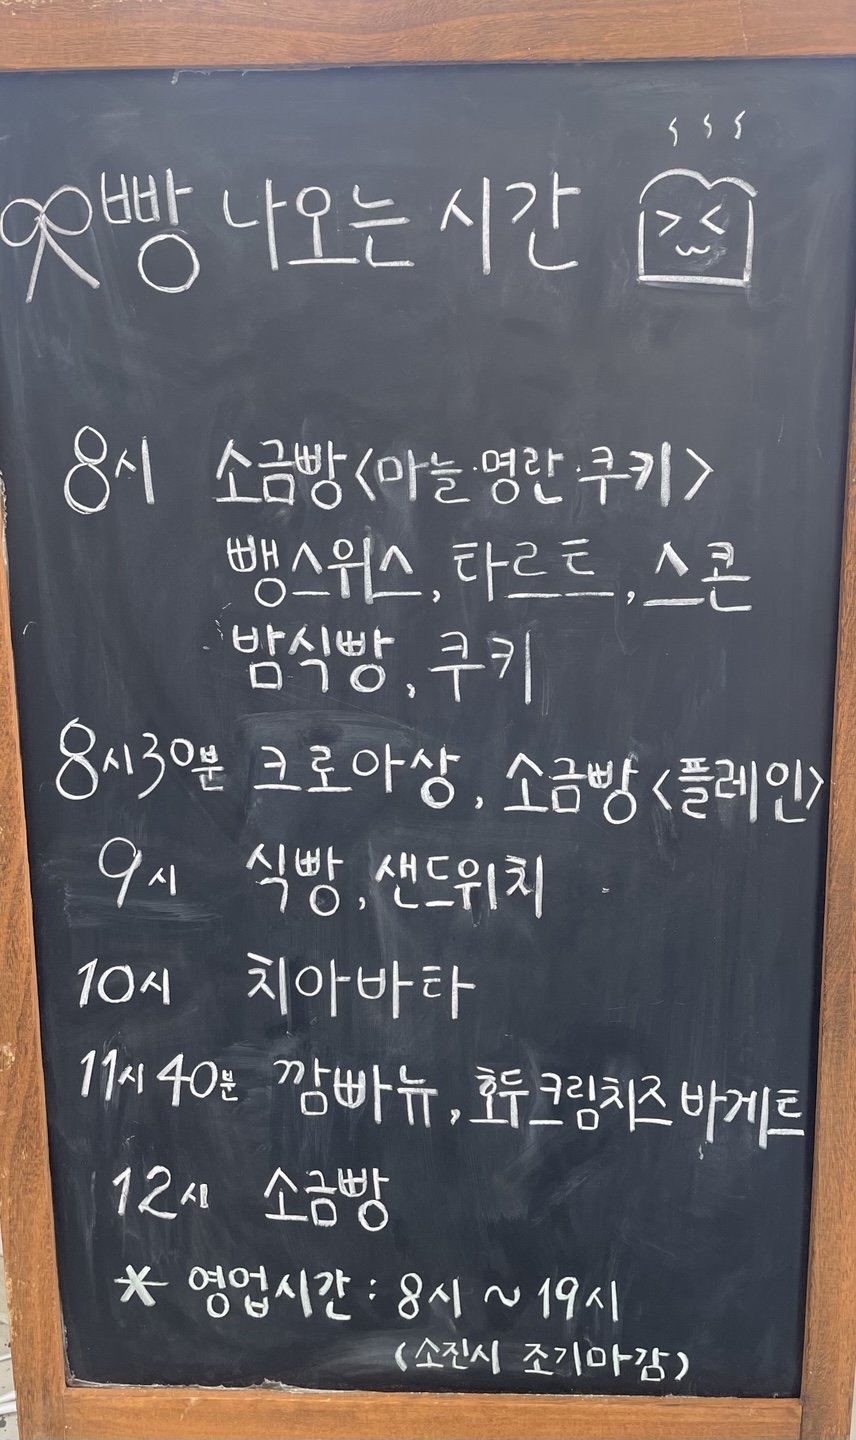 빵 나오는 시간
8시 소금빵<마늘·명란·쿠키>
뺑스위스, 타르트, 스콘
밤식빵, 쿠키
8시30분 크로아상, 소금빵<플레인>
9시 식빵, 샌드위치
10시 치아바타
11시 40분 깜빠뉴, 호두크림치즈 바게트
12시 소금빵
* 영업시간 : 8시 ~ 19시
(소진시 조기마감)